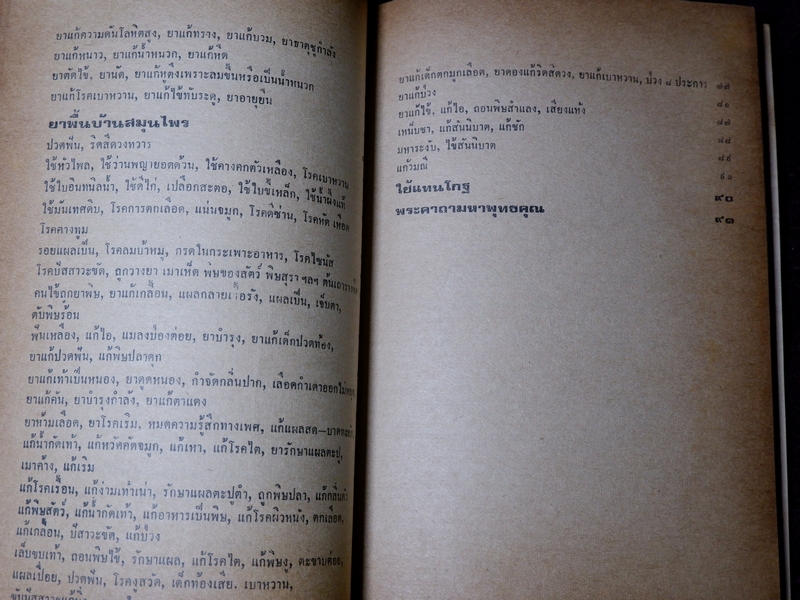 ยาแก้ความดันโลหิตสูง, ยาแก้ทราง, ยาแก้บวม, ยาธาตุชูกำลัง
ยาแก้หนาว, ยาแก้น้ำหนวก, ยาแก้หืด
ยาตัดไข้, ยานัด, ยาแก้หูตึงเพราะลมขึ้นหรือเป็นน้ำหนวก
ยาแก้โรคเบาหวาน, ยาแก้ไข้ทับระดู, ยาอายุยืน
ยาพื้นบ้านสมุนไพร
ปวดฟัน, ริดสีดวงทวาร
ใช้หัวไพล, ใช้ว่านพญายอดด้วน, ใช้คางคกตัวเหลือง, โรคเบาหวาน
ใช้ใบอินทนิลน้ำ, ใช้ดีไก่, เปลือกสะตอ, ใช้ใบขี้เหล็ก, ใช้น้ำผึ้งแท้
ใช้มันเทศดิบ, โรคการตกเลือด, แน่นจมูก, โรคดีซ่าน, โรคหัด เหือด
โรคคางทูม
รอยแผลเป็น, โรคลมบ้าหมู, กรดในกระเพาะอาหาร, โรคไซนัส
โรคปัสสาวะขัด, ถูกวางยา เมาเห็ด พิษของสัตว์ พิษสุรา ฯลฯ
คนไข้ถูกยาพิษ, ยาแก้เกลื้อน, แผลกลายเรื้อรัง, แผลเป็น, เจ็บตา,
ดับพิษร้อน
ฟันเหลือง, แก้ไอ, แมลงป่องต่อย, ยาบำรุง, ยาแก้เด็กปวดท้อง,
ยาแก้ปวดฟัน, แก้พิษปลาดุก
ยาแก้เท้าเป็นหนอง, ยาดูดหนอง, กำจัดกลิ่นปาก, เลือดกำเดาออกไม่หยุด
ยาแก้คัน, ยาบำรุงกำลัง, ยาแก้ตาแดง
ยาห้ามเลือด, ยาโรคเริม, หมดความรู้สึกทางเพศ, แก้แผลสด–บาดทะยัก
แก้น้ำกัดเท้า, แก้หวัดคัดจมูก, แก้เหา, แก้โรคไต, ยารักษาแผลตะปู,
เมาค้าง, แก้เริม
แก้โรคเรื้อน, แก้ง่ามเท้าเน่า, รักษาแผลตะปูตำ, ถูกพิษปลา, แก้กลิ่นตัว
แก้พิษสัตว์, แก้น้ำกัดเท้า, แก้อาหารเป็นพิษ, แก้โรคผิวหนัง, ตกเลือด,
แก้เกลื้อน, ปัสาวะขัด, แก้ป่วง
เล็บขบเท้า, ถอนพิษไข้, รักษาแผล, แก้โรคไต, แก้พิษงู, ตะขาบต่อย,
แผลเปื่อย, ปวดฟัน, โรคงูสวัด, เด็กท้องเสีย, เบาหวาน,
ยาแก้เด็กตกมูกเลือด, ยาดองแก้ริดสีดวง, ยาแก้เบาหวาน, ป่วง ๘ ประการ ๗๗
ยาแก้ป่วง ๘๑
ยาแก้ไข้, แก้ไอ, ถอนพิษสำแลง, เสียงแห้ง ๘๗
เหน็บชา, แก้สันนิบาต, แก้ชัก ๘๘
มหาระงับ, ไข้สันนิบาต ๘๙
แก้วมณี
ใย้แทนโกฐ ๙๐
พระคาถามหาพุทธคุณ ๙๑